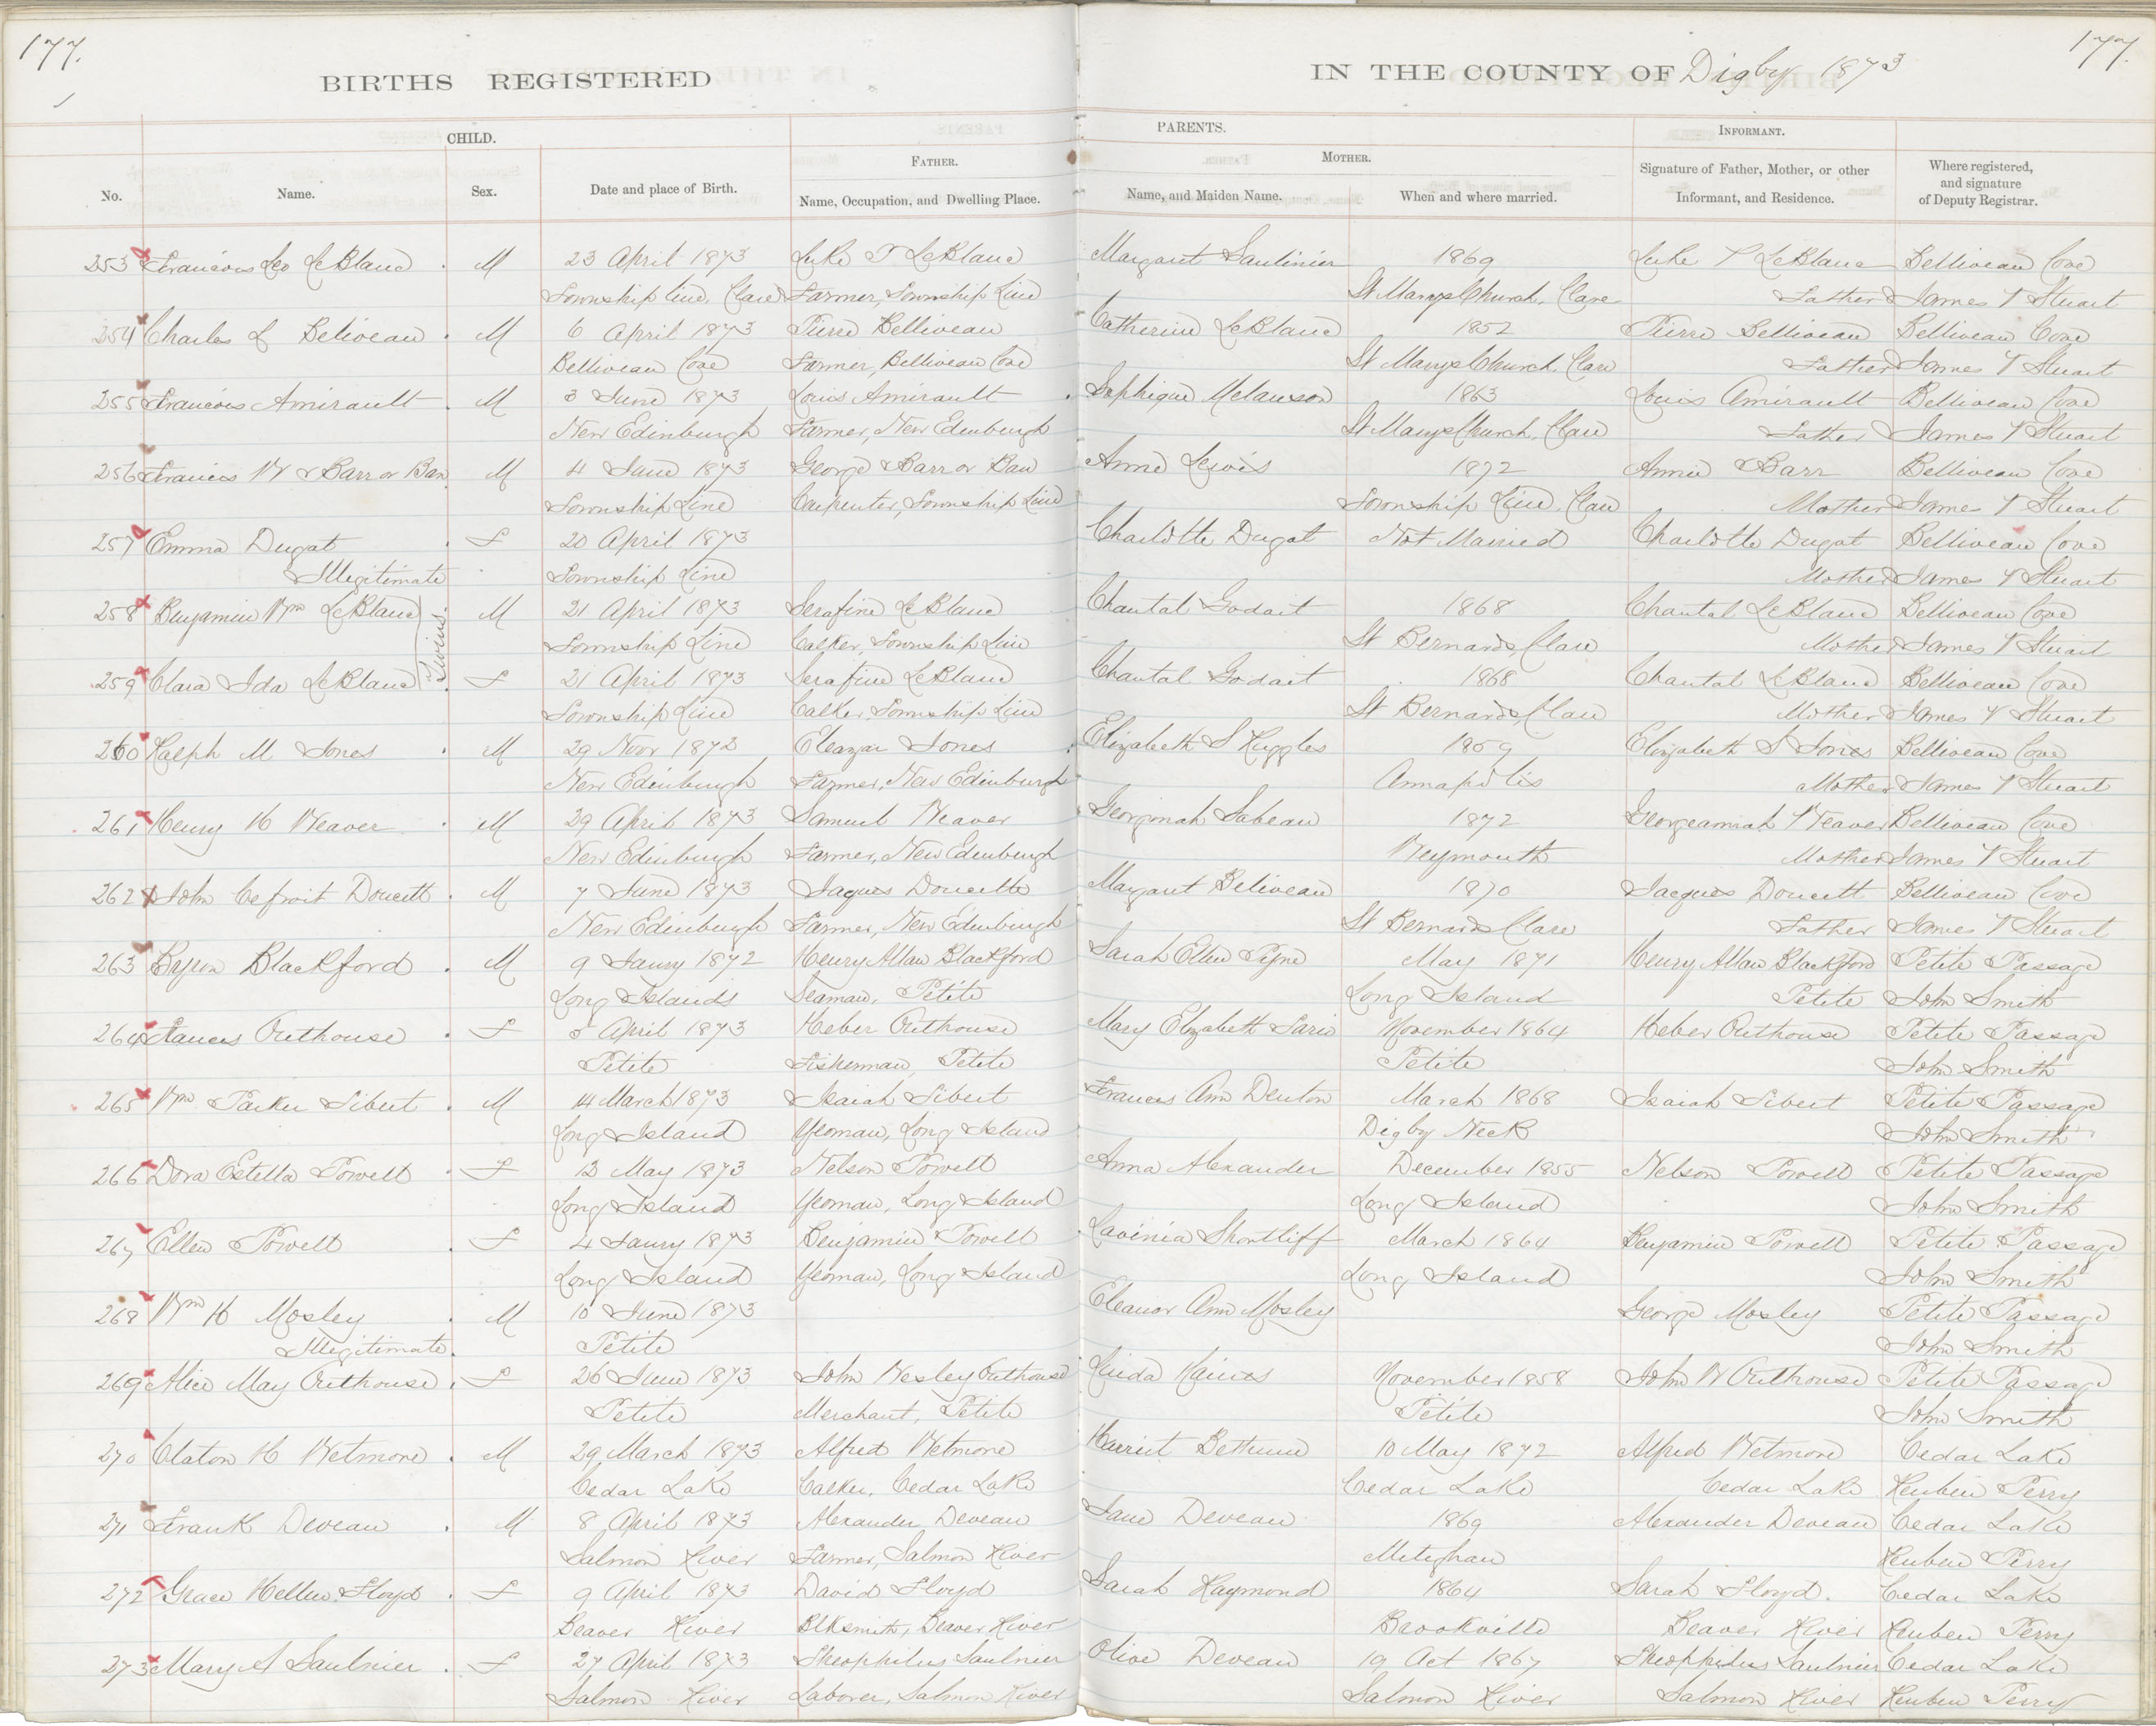 177.
177.
BIRTHS REGISTERED
IN THE COUNTY OF Digby 1873
CHILD.
PARENTS.
INFORMANT.
FATHER.
MOTHER.
No.
Name.
Sex.
Date and place of Birth.
Name, Occupation, and Dwelling Place.
Name, and Maiden Name.
When and where married.
Signature of Father, Mother, or other
Informant, and Residence.
Where registered,
and signature
of Deputy Registrar.
253 Francois Leo LeBlanc M 23 April 1873 Luke T LeBlanc Margaret Saulinier 1869 Luke T LeBlanc Belliveau Cove
Township Line, Clare Farmer, Township Line St Marys Church, Clare Father James T Stuart
254 Charles L Beliveau M 6 April 1873 Pierre Belliveau Catherine LeBlanc 1852 Pierre Belliveau Belliveau Cove
Belliveau Cove Farmer, Belliveau Cove St Marys Church, Clare Father James T Stuart
255 Francois Amirault M 3 June 1873 Louis Amirault Sophique Melanson 1863 Louis Amirault Belliveau Cove
New Edinburgh Farmer, New Edinburgh St Marys Church, Clare Father James T Stuart
256 Francis W Barr or Ban M 4 June 1873 George Barr or Ban Anne Lewis 1872 Annie Barr Belliveau Cove
Township Line Carpenter, Township Line Township Line, Clare Mother James T Stuart
257 Emma Dugat F 20 April 1873 Charlotte Dugat Not Married Charlotte Dugat Belliveau Cove
Illegitimate Township Line Mother James T Stuart
258 Benjamin Wm LeBlanc Twins. M 21 April 1873 Serafine LeBlanc Chantal Godait 1868 Chantal LeBlanc Belliveau Cove
Township Line Calker, Township Line St Bernards, Clare Mother James T Stuart
259 Clara Ida LeBlanc F 21 April 1873 Serafine LeBlanc Chantal Godait 1868 Chantal LeBlanc Belliveau Cove
Township Line Calker, Township Line St Bernards, Clare Mother James T Stuart
260 Ralph M Jones M 29 Novr 1872 Eleazar Jones Elizabeth S Ruggles 1859 Elizabeth S Jones Belliveau Cove
New Edinburgh Farmer, New Edinburgh Annapolis Mother James T Stuart
261 Henry H Weaver M 29 April 1873 Samuel Weaver Georginah Sabeau 1872 Georgeannah Weaver Belliveau Cove
New Edinburgh Farmer, New Edinburgh Weymouth Mother James T Stuart
262 John Cefroit Doucett M 7 June 1873 Jaques Doucette Margaret Beliveau 1870 Jacques Doucett Belliveau Cove
New Edinburgh Farmer, New Edinburgh St Bernards Clare Father James T Stuart
263 Byron Blackford M 9 Jany 1872 Henry Allan Blackford Sarah Ellen Pyne May 1871 Henry Allan Blackford Petite Passage
Long Islands Seaman, Petite Long Island Petite John Smith
264 Frances Outhouse F 5 April 1873 Heber Outhouse Mary Elizabeth November 1864 Heber Outhouse Petite Passage
Petite Fisherman, Petite Petite John Smith
265 Wm Parker Sibert M 14 March 1873 Isaiah Sibert Frances Ann Denton March 1868 Isaiah Sibert Petite Passage
Long Island Yeoman, Long Island Digby Neck John Smith
266 Dora Estella Powell F 12 May 1873 Nelson Powell Anna Alexander December 1855 Nelson Powell Petite Passage
Long Island Yeoman, Long Island Long Island John Smith
267 Ellen Powell F 4 Jany 1873 Benjamin Powell Lavinia Shortliff March 1864 Benjamin Powell Petite Passage
Long Island Yeoman, Long Island Long Island John Smith
268 Wm H Mosley M 10 June 1873 Eleanor Ann Mosley George Mosley Petite Passage
Illegitimate Petite John Smith
269 Alice May Outhouse F 26 June 1873 John Wesley Outhouse Linda Haines November 1858 John W Outhouse Petite Passage
Petite Merchant, Petite Petite John Smith
270 Claton H Wetmore M 29 March 1873 Alfred Wetmore Harriet Bethune 10 May 1872 Alfred Wetmore Cedar Lake
Cedar Lake Calker, Cedar Lake Cedar Lake Cedar Lake Reuben Perry
271 Frank Deveau M 8 April 1873 Alexander Deveau Jane Deveau 1869 Alexander Deveau Cedar Lake
Salmon River Farmer, Salmon River Meteghan Reuben Perry
272 Grace Hellen Floyd F 9 April 1873 David Floyd Sarah Raymond 1864 Sarah Floyd. Cedar Lake
Beaver River Blksmith, Beaver River Brookville Beaver River Reuben Perry
273 Mary A Saulnier F 27 April 1873 Theophilus Saulnier Olive Deveau 19 Oct 1867 Theophilus Saulnier Cedar Lake
Salmon River Laborer, Salmon River Salmon River Salmon River Reuben Perry